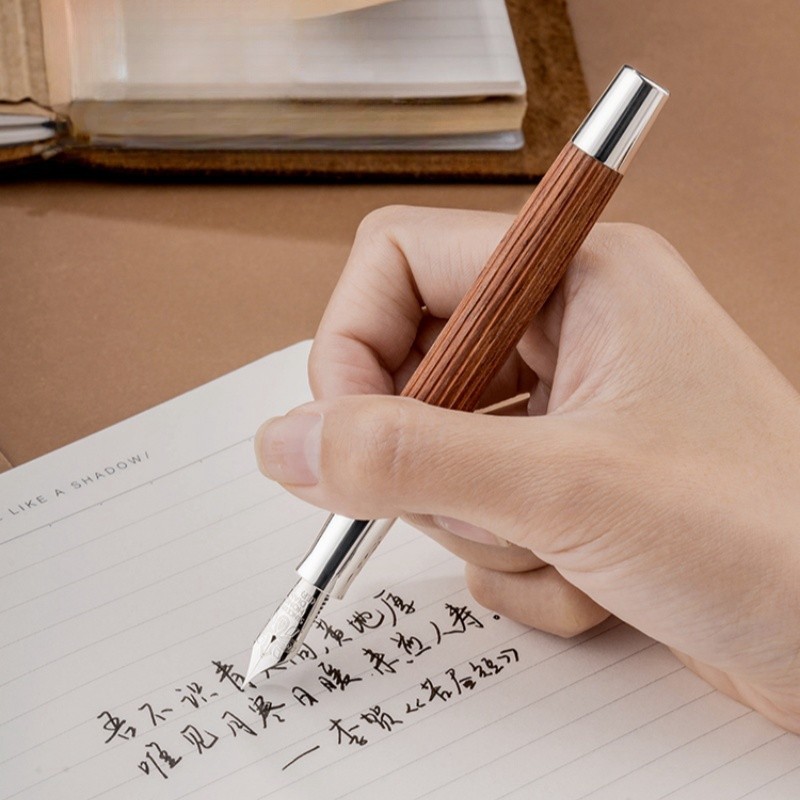 LIKE A SHADOW/
吾不识青天高,黄地厚
唯见月寒日暖,来煎人寿。
— 李贺《苦昼短》